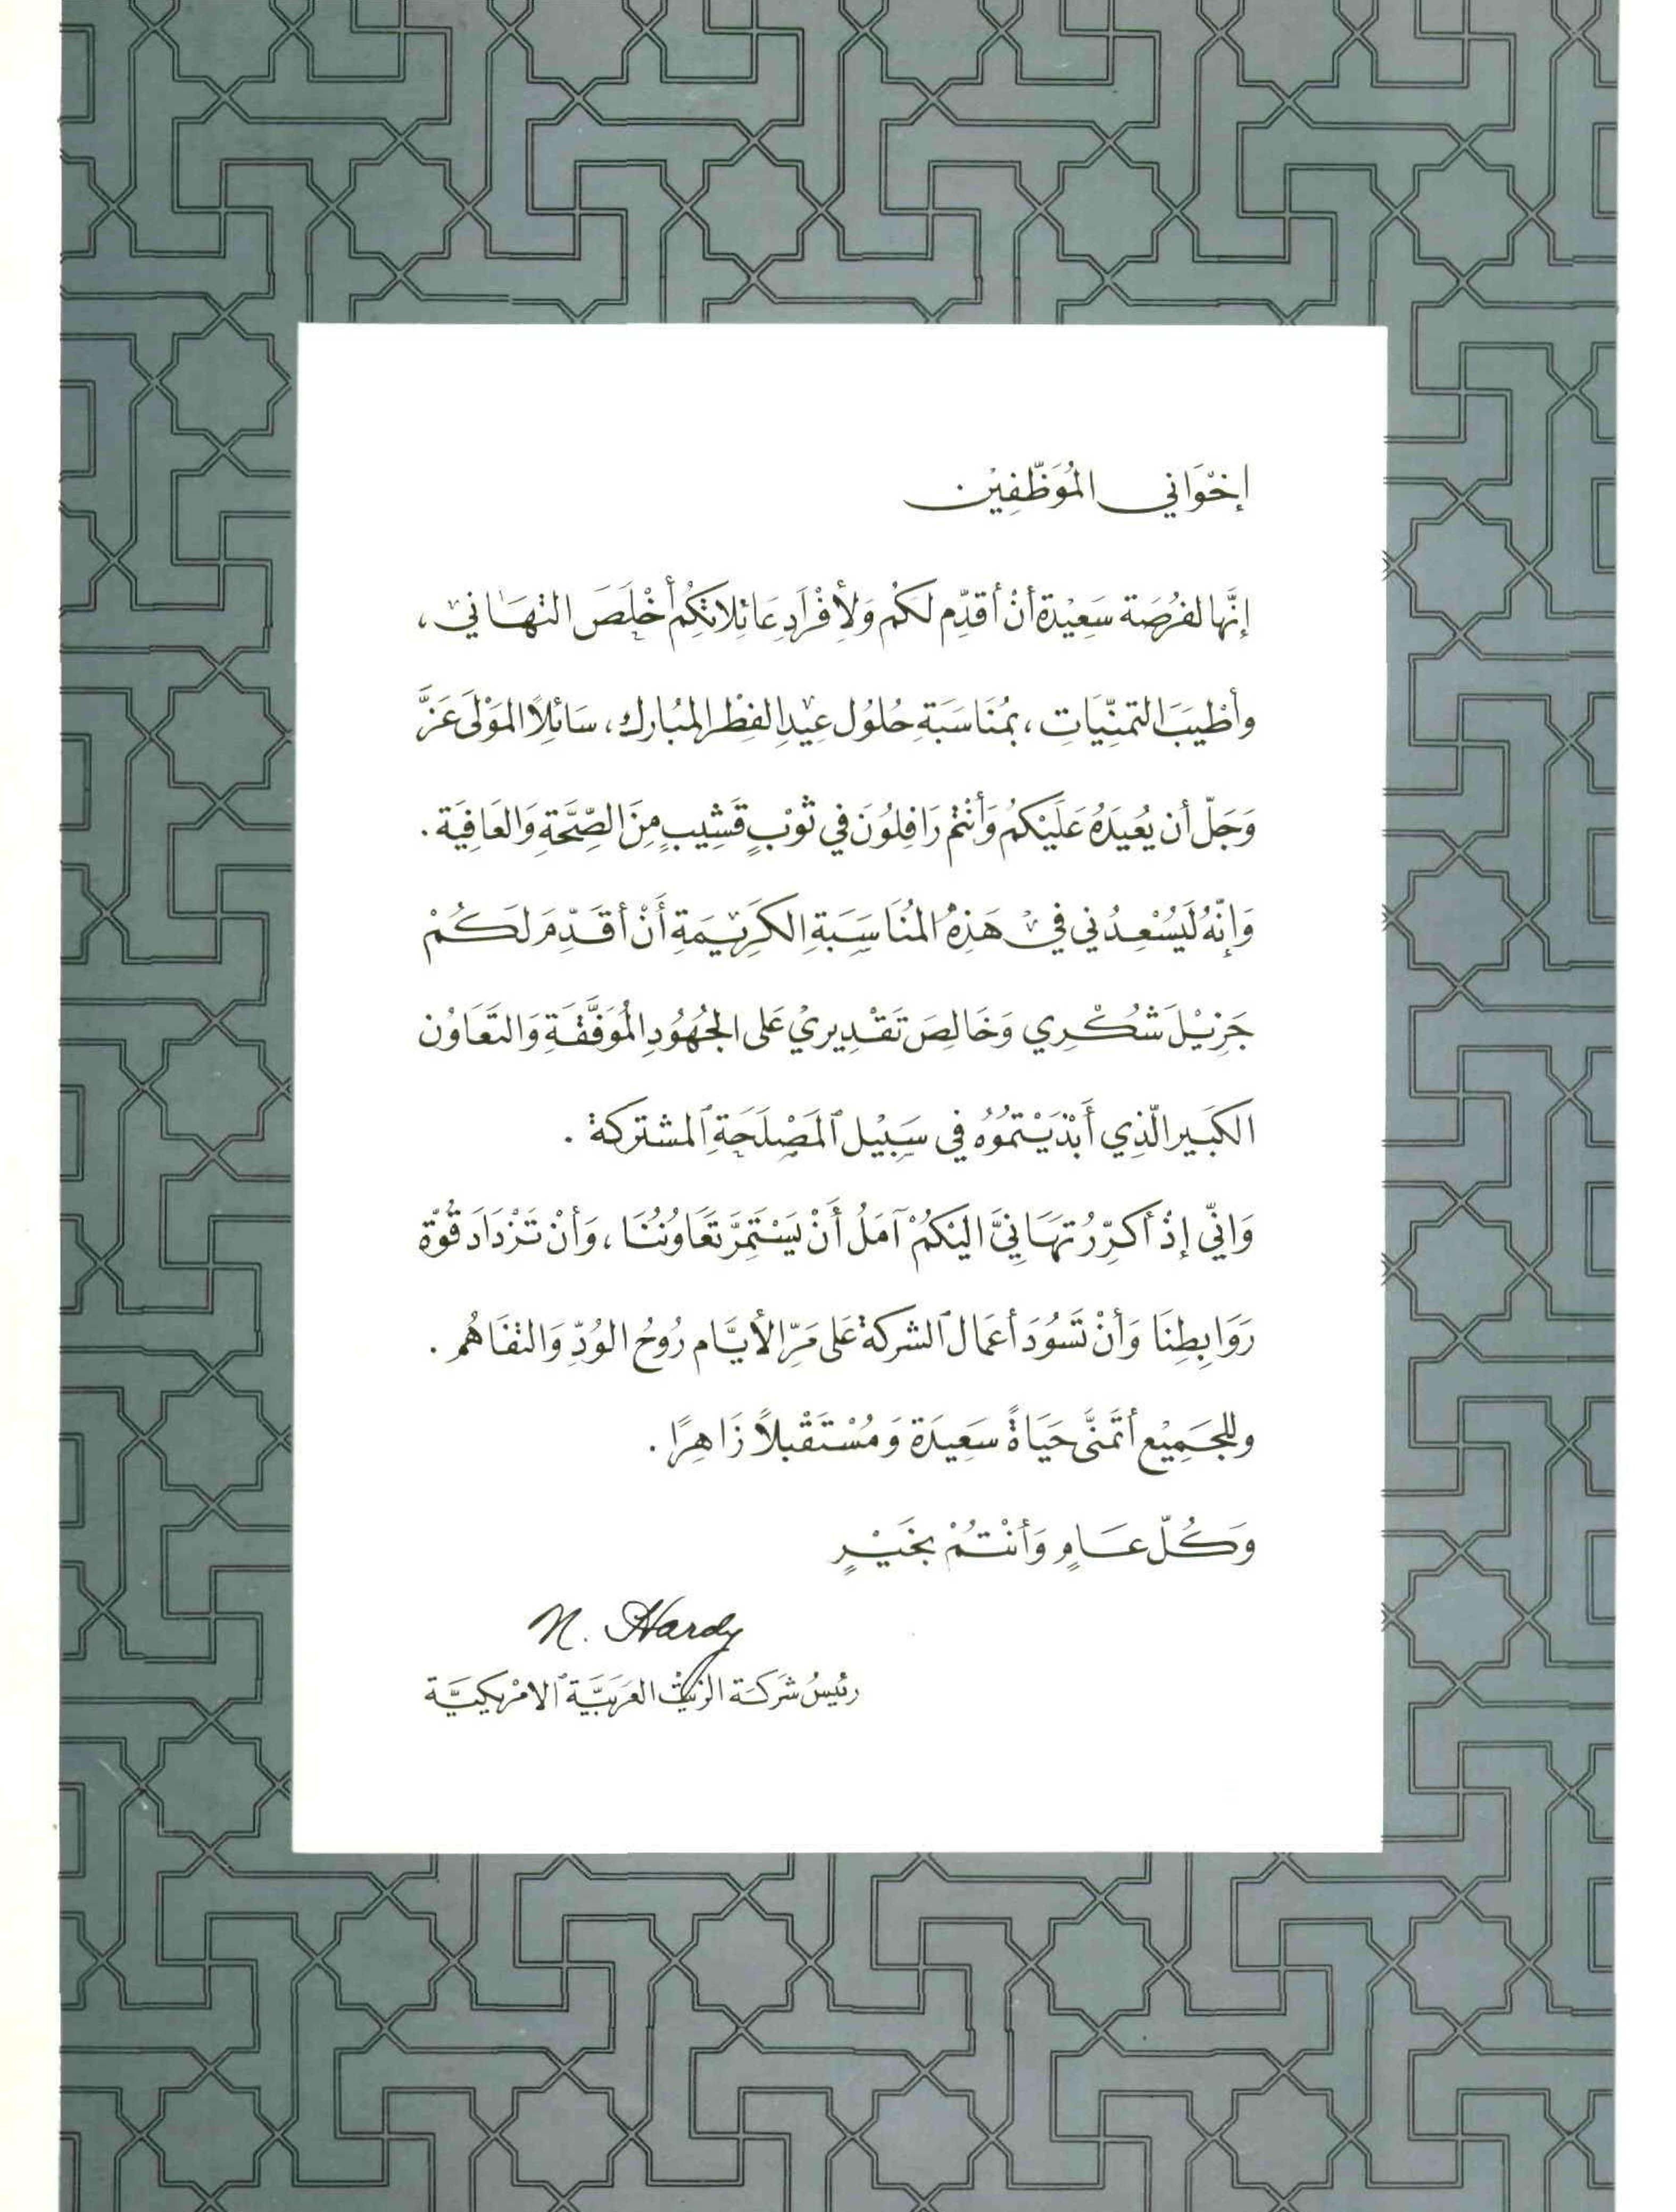 إخْوَاني المُوَظّفِيْن
إنَّها لفُرْصَة سَعِيْدَة أنْ أقدِّم لكُم وَلأفْرَادِ عَائِلاتكُم أخْلَصَ التهَاني،
وأطْيَبَ التمنِّيَاتِ، بمُنَاسَبَةِ حُلوُل عيْدِ الفِطْر المبُارك، سَائلِاً المَوْلىَ عَزَّ
وَجَلّ أن يُعيِدَهُ عَلَيْكمُ وَأنْتُم رَافِلوُنَ في ثوْبٍ قَشِيبٍ مِنَ الصِّحَّةِ وَالعَافِيَة.
وَإنّهُ لَيُسْعِدُني في هَذِهِ المُنَاسَبَةِ الكَرِيْمَةِ أنْ أقَدِّمَ لكُمْ
جَزِيْلَ شُكْرِي وَخَالِصَ تَقْدِيري عَلى الجُهُوُدِ المُوَفَّقَةِ وَالتَّعَاوُن
الكَبَيرِ الّذِي أَبْدَيْتمُوُه في سَبِيْل المَصْلَحَةِ المشتركة.
وَانِّي إذْ أكرِّرُ تهَانِيَّ اليَكُمْ آمَلُ أنْ يَسْتَمِرَّ تَعَاوُنُنَا، وَأنْ تَزْدَادَ قُوّة
رَوَابِطِنَا وَأنْ تَسُوُدَ أعمَال الشركة عَلى مَرِّ الأيَّام رُوحُ الوُدِّ وَالتفَاهُم.
وللجَمِيْع أتَمَنَّى حَيَاةً سَعِيدَة وَمُسْتَقْبلاً زَاهِرًا.
وَكُلّ عَامٍ وَأنْتُمْ بخَيْرٍ
N. Hardy
رئيسُ شرَكَة الزيْت العَرَبيَّة الامْريكيَّة